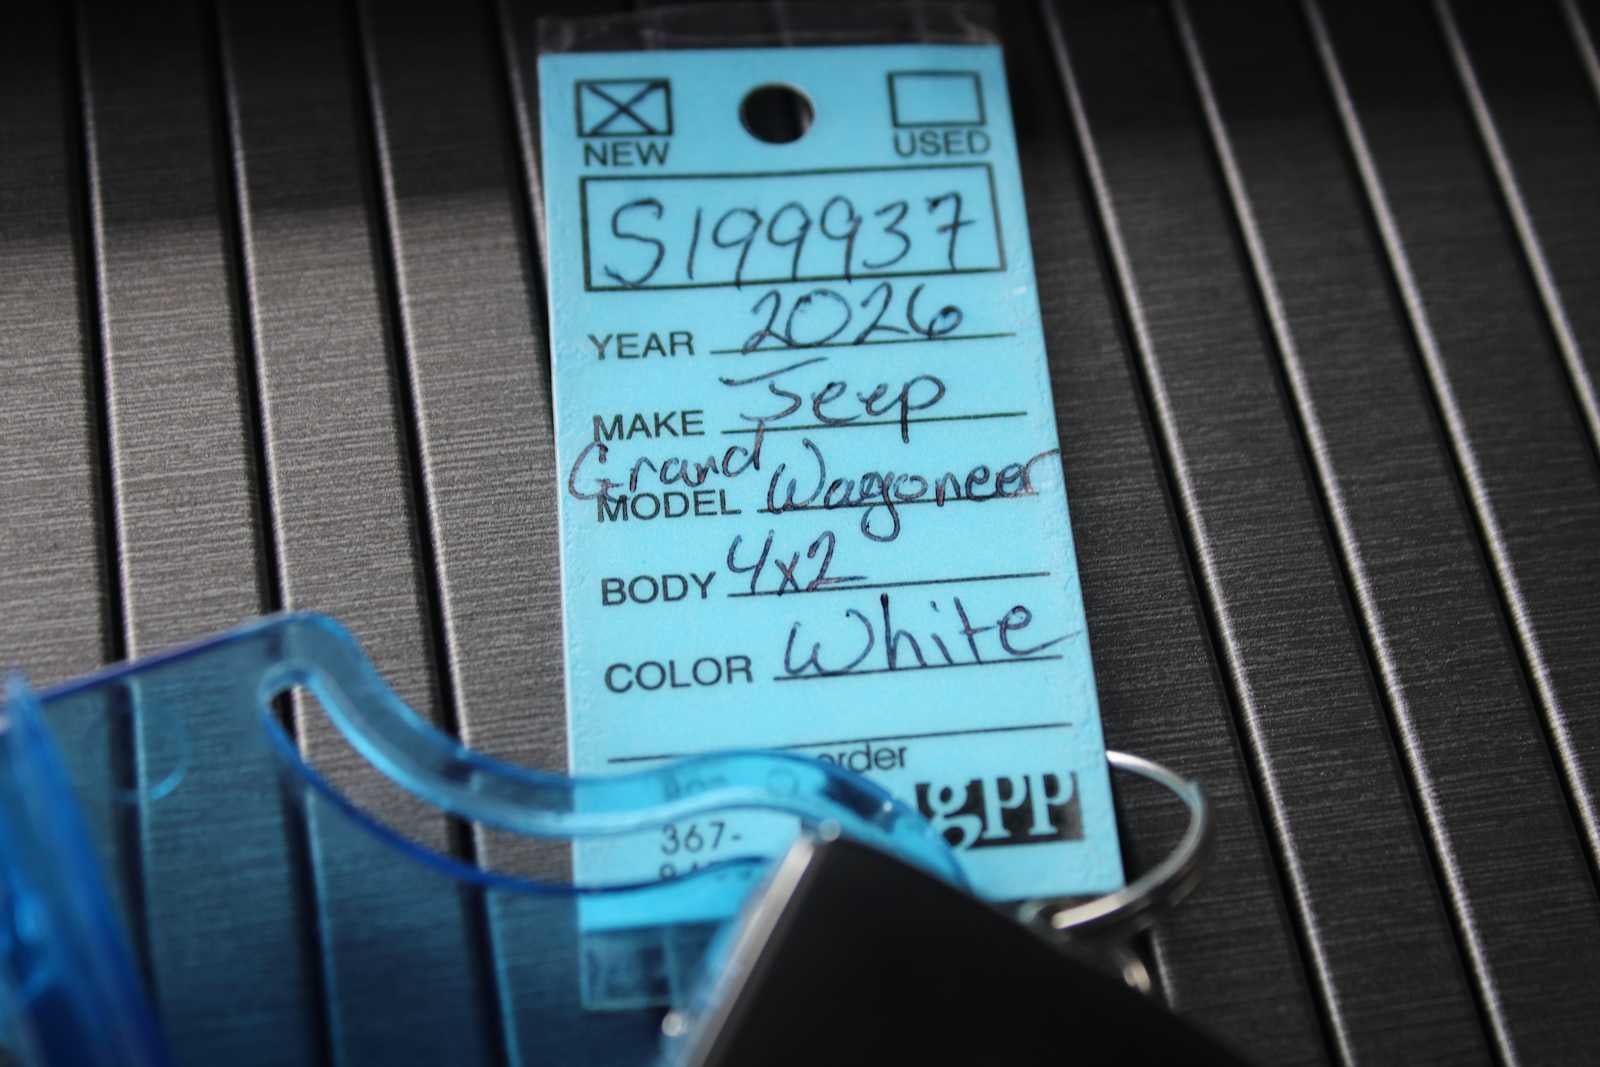 NEW USED
S199937
YEAR 2026
MAKE Jeep
Grand
MODEL Wagoneer
BODY 4x2
COLOR White
order
gPP
367-